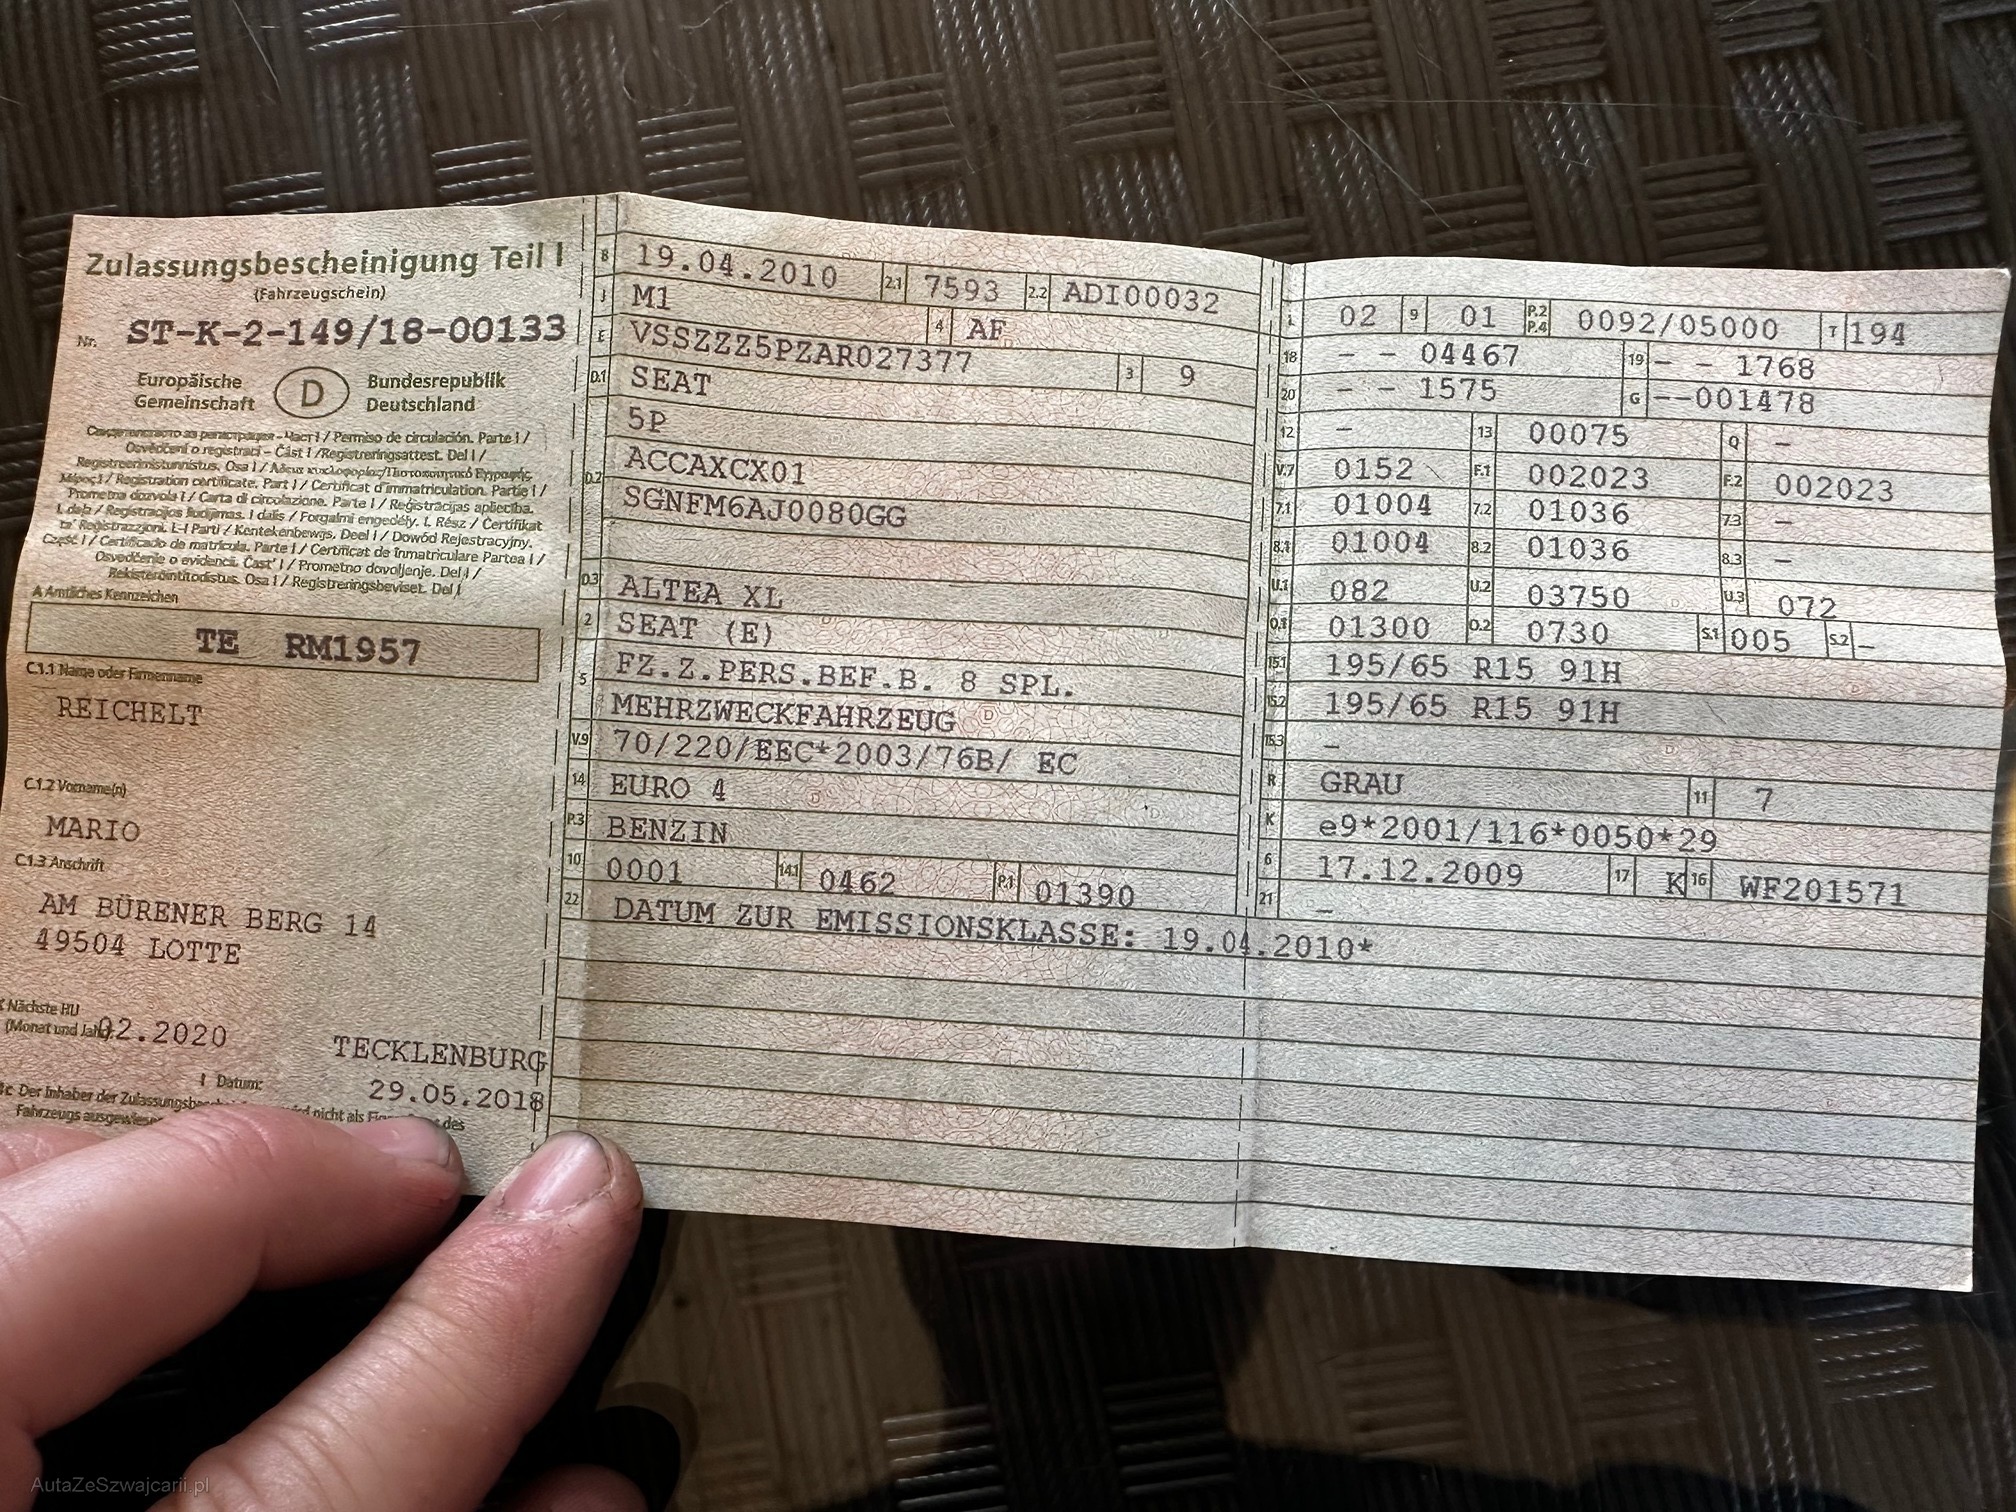 Zulassungsbescheinigung Teil I
(Fahrzeugschein)
Nr. ST-K-2-149/18-00133
Europäische Gemeinschaft D Bundesrepublik Deutschland
Permiso de circulación. Parte I /
Osvědčení o registraci – Část I / Registreringsattest. Del I /
Registreerimistunnistus. Osa I /
Registration certificate. Part I / Certificat d'immatriculation. Partie I /
Prometna dozvola I / Carta di circolazione. Parte I / Reģistrācijas apliecība.
I. daļa / Registracijos liudijimas. I dalis / Forgalmi engedély. I. Rész / Ċertifikat
ta' Reġistrazzjoni. L-I Parti / Kentekenbewijs. Deel I / Dowód Rejestracyjny.
Część I / Certificado de matrícula. Parte I / Certificat de înmatriculare Partea I /
Osvedčenie o evidencii. Časť I / Prometno dovoljenje. Del I /
Rekisteröintitodistus. Osa I / Registreringsbeviset. Del I
A Amtliches Kennzeichen
TE RM1957
C.1.1 Name oder Firmenname
REICHELT
C.1.2 Vorname(n)
MARIO
C.1.3 Anschrift
AM BÜRENER BERG 14
49504 LOTTE
Nächste HU
(Monat und Jahr) 02.2020
TECKLENBURG
I Datum:
29.05.2018
Der Inhaber der nicht als des
Fahrzeugs
B 19.04.2010 2.1 7593 2.2 ADI00032
J M1 4 AF
E VSSZZZ5PZAR027377 3 9
D.1 SEAT
5P
D.2 ACCAXCX01
SGNFM6AJ0080GG
D.3 ALTEA XL
2 SEAT (E)
5 FZ.Z.PERS.BEF.B. 8 SPL.
MEHRZWECKFAHRZEUG
V.9 70/220/EEC*2003/76B/ EC
14 EURO 4
P.3 BENZIN
10 0001 14.1 0462 P.1 01390
22 DATUM ZUR EMISSIONSKLASSE: 19.04.2010*
L 02 9 01 P.2 P.4 0092/05000 T 194
18 - - 04467 19 - - 1768
20 - - 1575 G --001478
12 - 13 00075 Q -
V.7 0152 F.1 002023 F.2 002023
7.1 01004 7.2 01036 7.3 -
8.1 01004 8.2 01036 8.3 -
U.1 082 U.2 03750 U.3 072
O.1 01300 O.2 0730 S.1 005 S.2 -
15.1 195/65 R15 91H
15.2 195/65 R15 91H
15.3 -
R GRAU 11 7
K e9*2001/116*0050*29
6 17.12.2009 17 K 16 WF201571
21 -
AutaZeSzwajcarii.pl